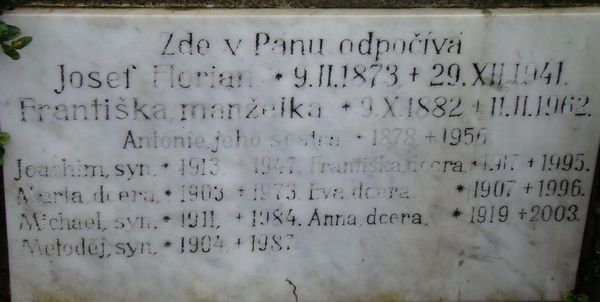 Zde v Pánu odpočívá
Josef Florian * 9.II.1873 + 29.XII.1941.
Františka, manželka * 9.X.1882 + 11.II.1962.
Antonie, jeho sestra * 1878 + 1956
Joachim, syn, * 1913 + 1947. Františka, dcera * 1917 + 1995.
Marta, dcera, * 1905 + 1973. Eva, dcera, * 1907 + 1996.
Michael, syn, * 1911, + 1984. Anna, dcera, * 1919 + 2003.
Metoděj, syn, * 1904 + 1987